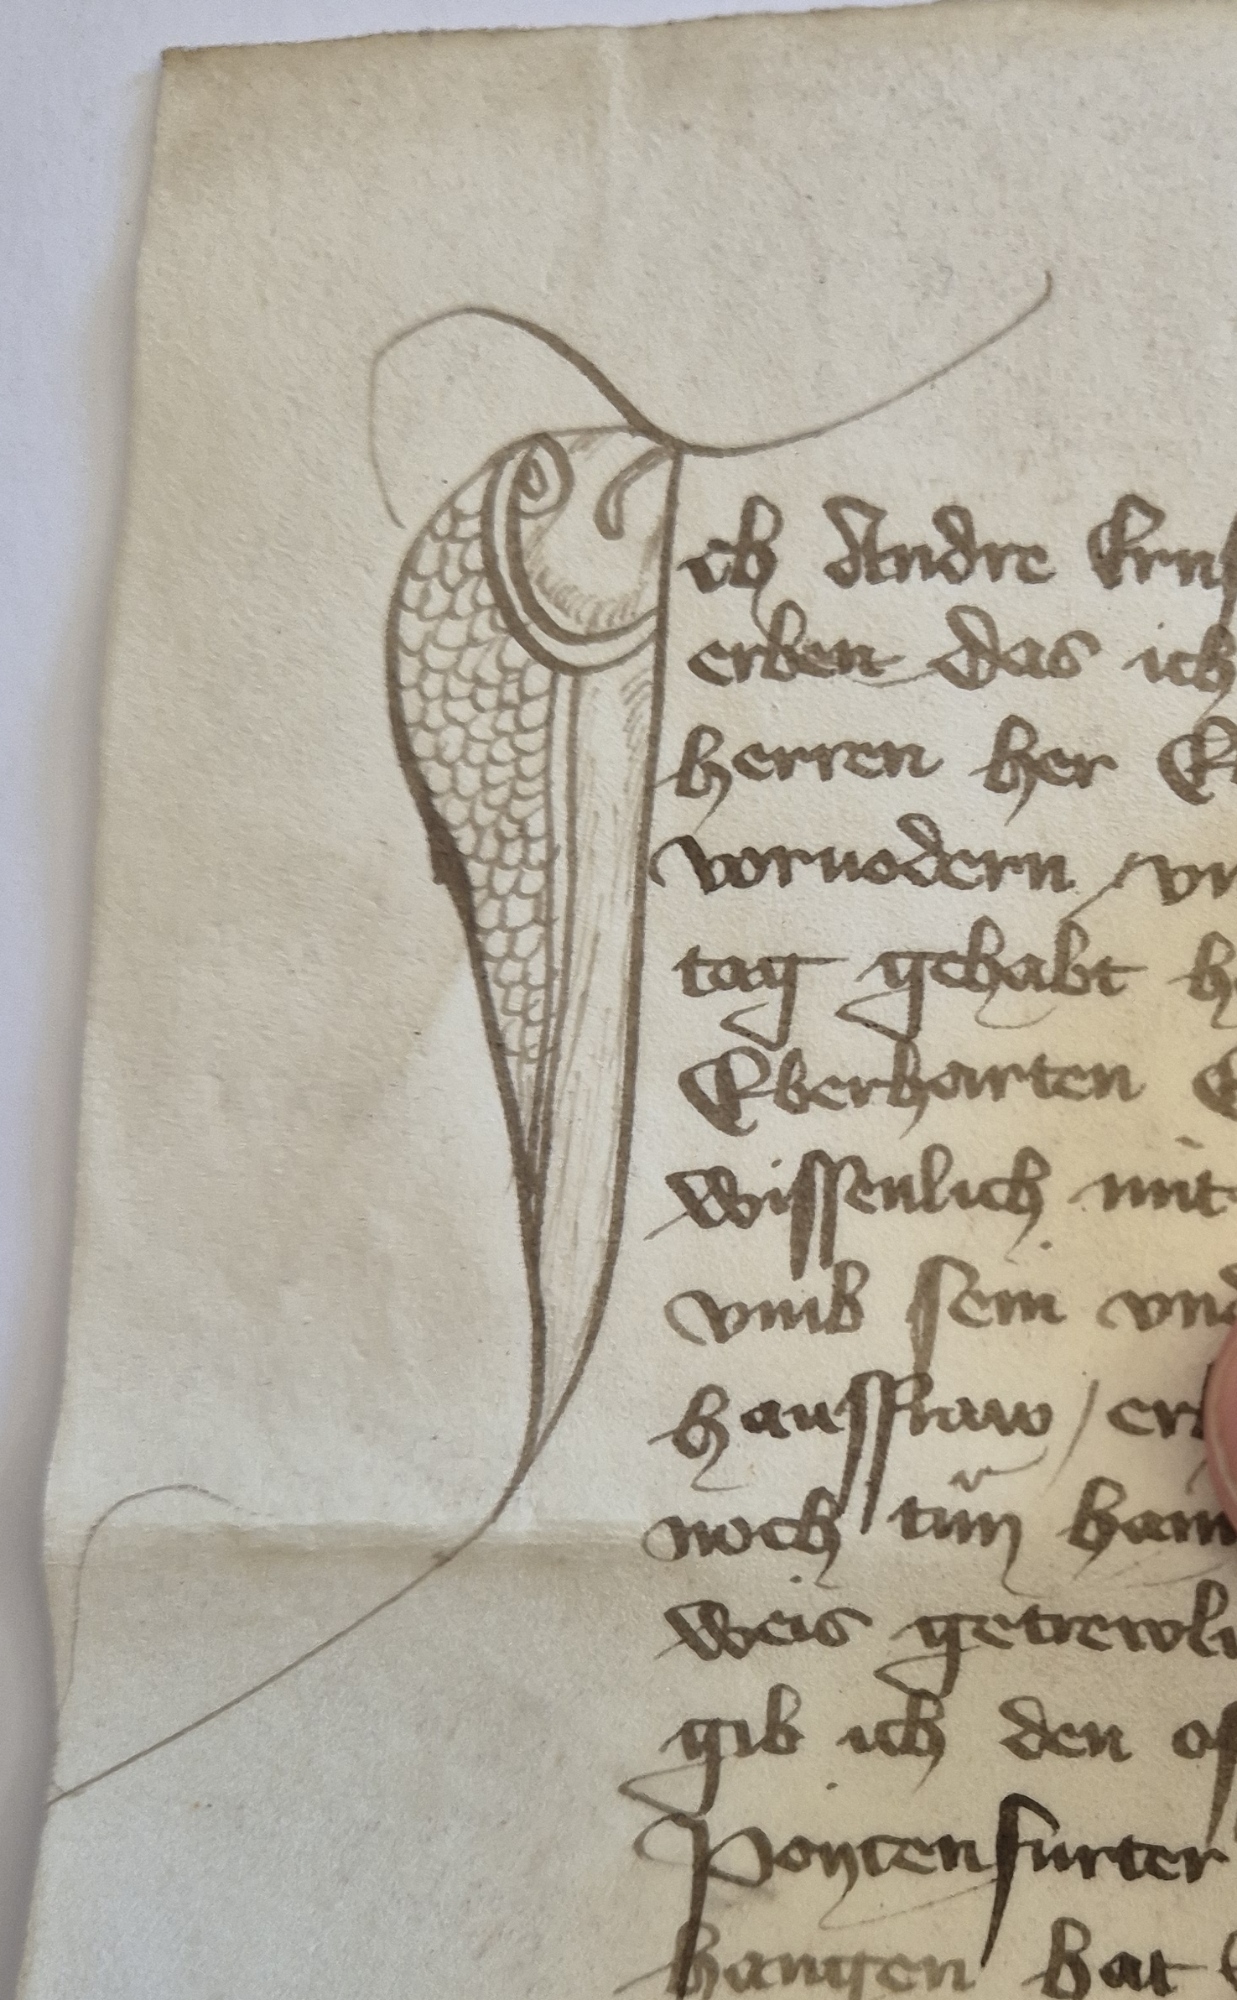 Ich Andre
erben das ich
herren her
voruodern
tag gehabt
Eberharten
wissenlich mit
vmb sein vnd
hausfraw / er
noch tun
weis getrewli
gib ich den
Pontenfurter
hangen hat